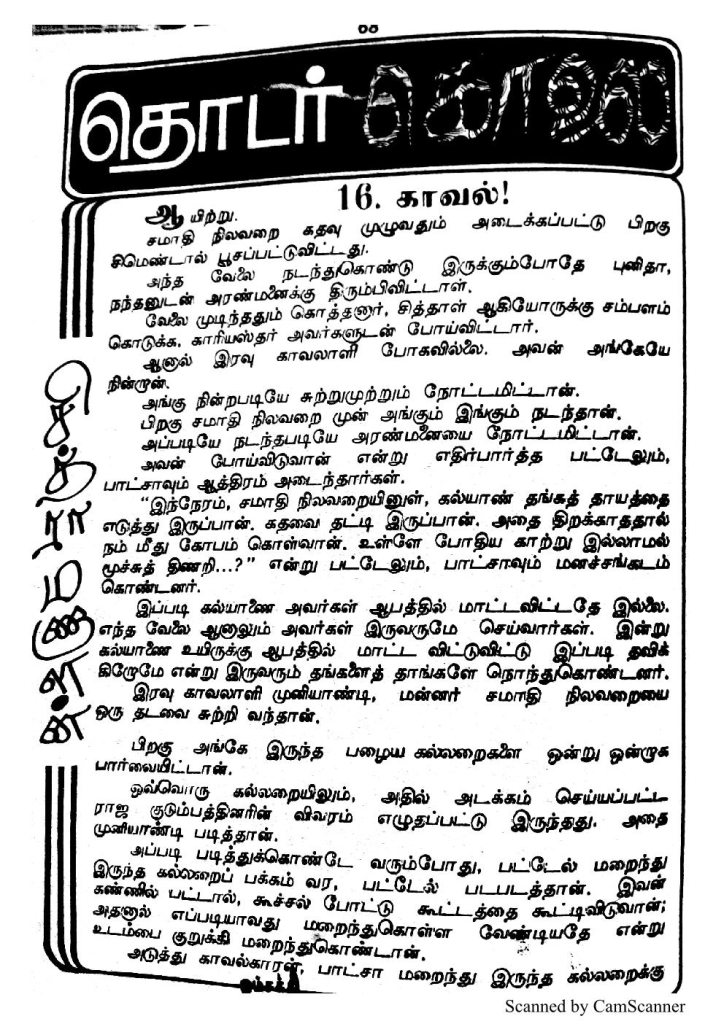 தொடர் கொலை
16. காவல்!
ஆயிற்று.
சமாதி நிலவறை கதவு முழுவதும் அடைக்கப்பட்டு பிறகு
சிமெண்டால் பூசப்பட்டுவிட்டது.
அந்த வேலை நடந்துகொண்டு இருக்கும்போதே புனிதா,
நந்தனுடன் அரண்மனைக்கு திரும்பிவிட்டாள்.
வேலை முடிந்ததும் கொத்தனார், சித்தாள் ஆகியோருக்கு சம்பளம்
கொடுக்க, காரியஸ்தர் அவர்களுடன் போய்விட்டார்.
ஆனால் இரவு காவலாளி போகவில்லை. அவன் அங்கேயே
நின்றான்.
அங்கு நின்றபடியே சுற்றுமுற்றும் நோட்டமிட்டான்.
பிறகு சமாதி நிலவறை முன் அங்கும் இங்கும் நடந்தான்.
அப்படியே நடந்தபடியே அரண்மனையை நோட்டமிட்டான்.
அவன் போய்விடுவான் என்று எதிர்பார்த்த பட்டேலும்,
பாட்சாவும் ஆத்திரம் அடைந்தார்கள்.
“இந்நேரம், சமாதி நிலவறையினுள், கல்யாண் தங்கத் தாயத்தை
எடுத்து இருப்பான். கதவை தட்டி இருப்பான். அதை திறக்காததால்
நம் மீது கோபம் கொள்வான். உள்ளே போதிய காற்று இல்லாமல்
மூச்சுத் திணறி...?” என்று பட்டேலும், பாட்சாவும் மனச்சங்கடம்
கொண்டனர்.
இப்படி கல்யாணை அவர்கள் ஆபத்தில் மாட்டவிட்டதே இல்லை.
எந்த வேலை ஆனாலும் அவர்கள் இருவருமே செய்வார்கள். இன்று
கல்யாணை உயிருக்கு ஆபத்தில் மாட்ட விட்டுவிட்டு இப்படி தவிக்
கிறோமே என்று இருவரும் தங்களைத் தாங்களே நொந்துகொண்டனர்.
இரவு காவலாளி முனியாண்டி, மன்னர் சமாதி நிலவறையை
ஒரு தடவை சுற்றி வந்தான்.
பிறகு அங்கே இருந்த பழைய கல்லறைகளை ஒன்று ஒன்றாக
பார்வையிட்டான்.
ஒவ்வொரு கல்லறையிலும், அதில் அடக்கம் செய்யப்பட்ட
ராஜ குடும்பத்தினரின் விவரம் எழுதப்பட்டு இருந்தது. அதை
முனியாண்டி படித்தான்.
அப்படி படித்துக்கொண்டே வரும்போது, பட்டேல் மறைந்து
இருந்த கல்லறைப் பக்கம் வர, பட்டேல் படபடத்தான். இவன்
கண்ணில் பட்டால், கூச்சல் போட்டு கூட்டத்தை கூட்டிவிடுவான்;
அதனால் எப்படியாவது மறைந்துகொள்ள வேண்டியதே என்று
உடம்பை குறுக்கி மறைந்துகொண்டான்.
அடுத்து காவல்காரன், பாட்சா மறைந்து இருந்த கல்லறைக்கு
Scanned by CamScanner